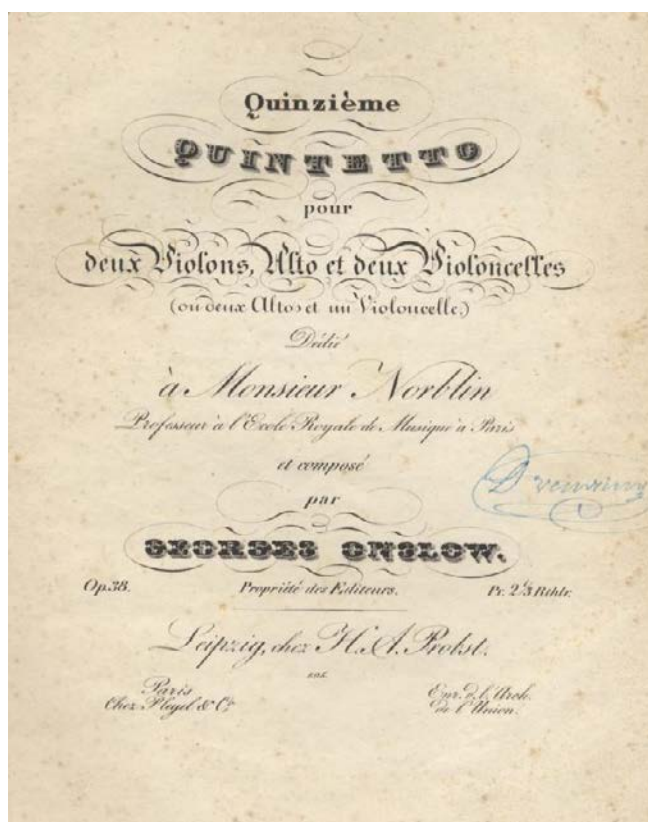 Quinzième
QUINTETTO
pour
deux Violons, Alto et deux Violoncelles
(ou deux Altos et un Violoncelle,)
Dédié
à Monsieur Norblin
Professeur à l'Ecole Royale de Musique à Paris
et composé
par
GEORGES ONSLOW.
Op.38. Propriété des Editeurs. Pr. 2 2/3 Rthlr.
Leipzig, chez H. A. Probst.
Paris
Chez Pleyel & Co
Enr. d. l'Arch.
de l'Union.